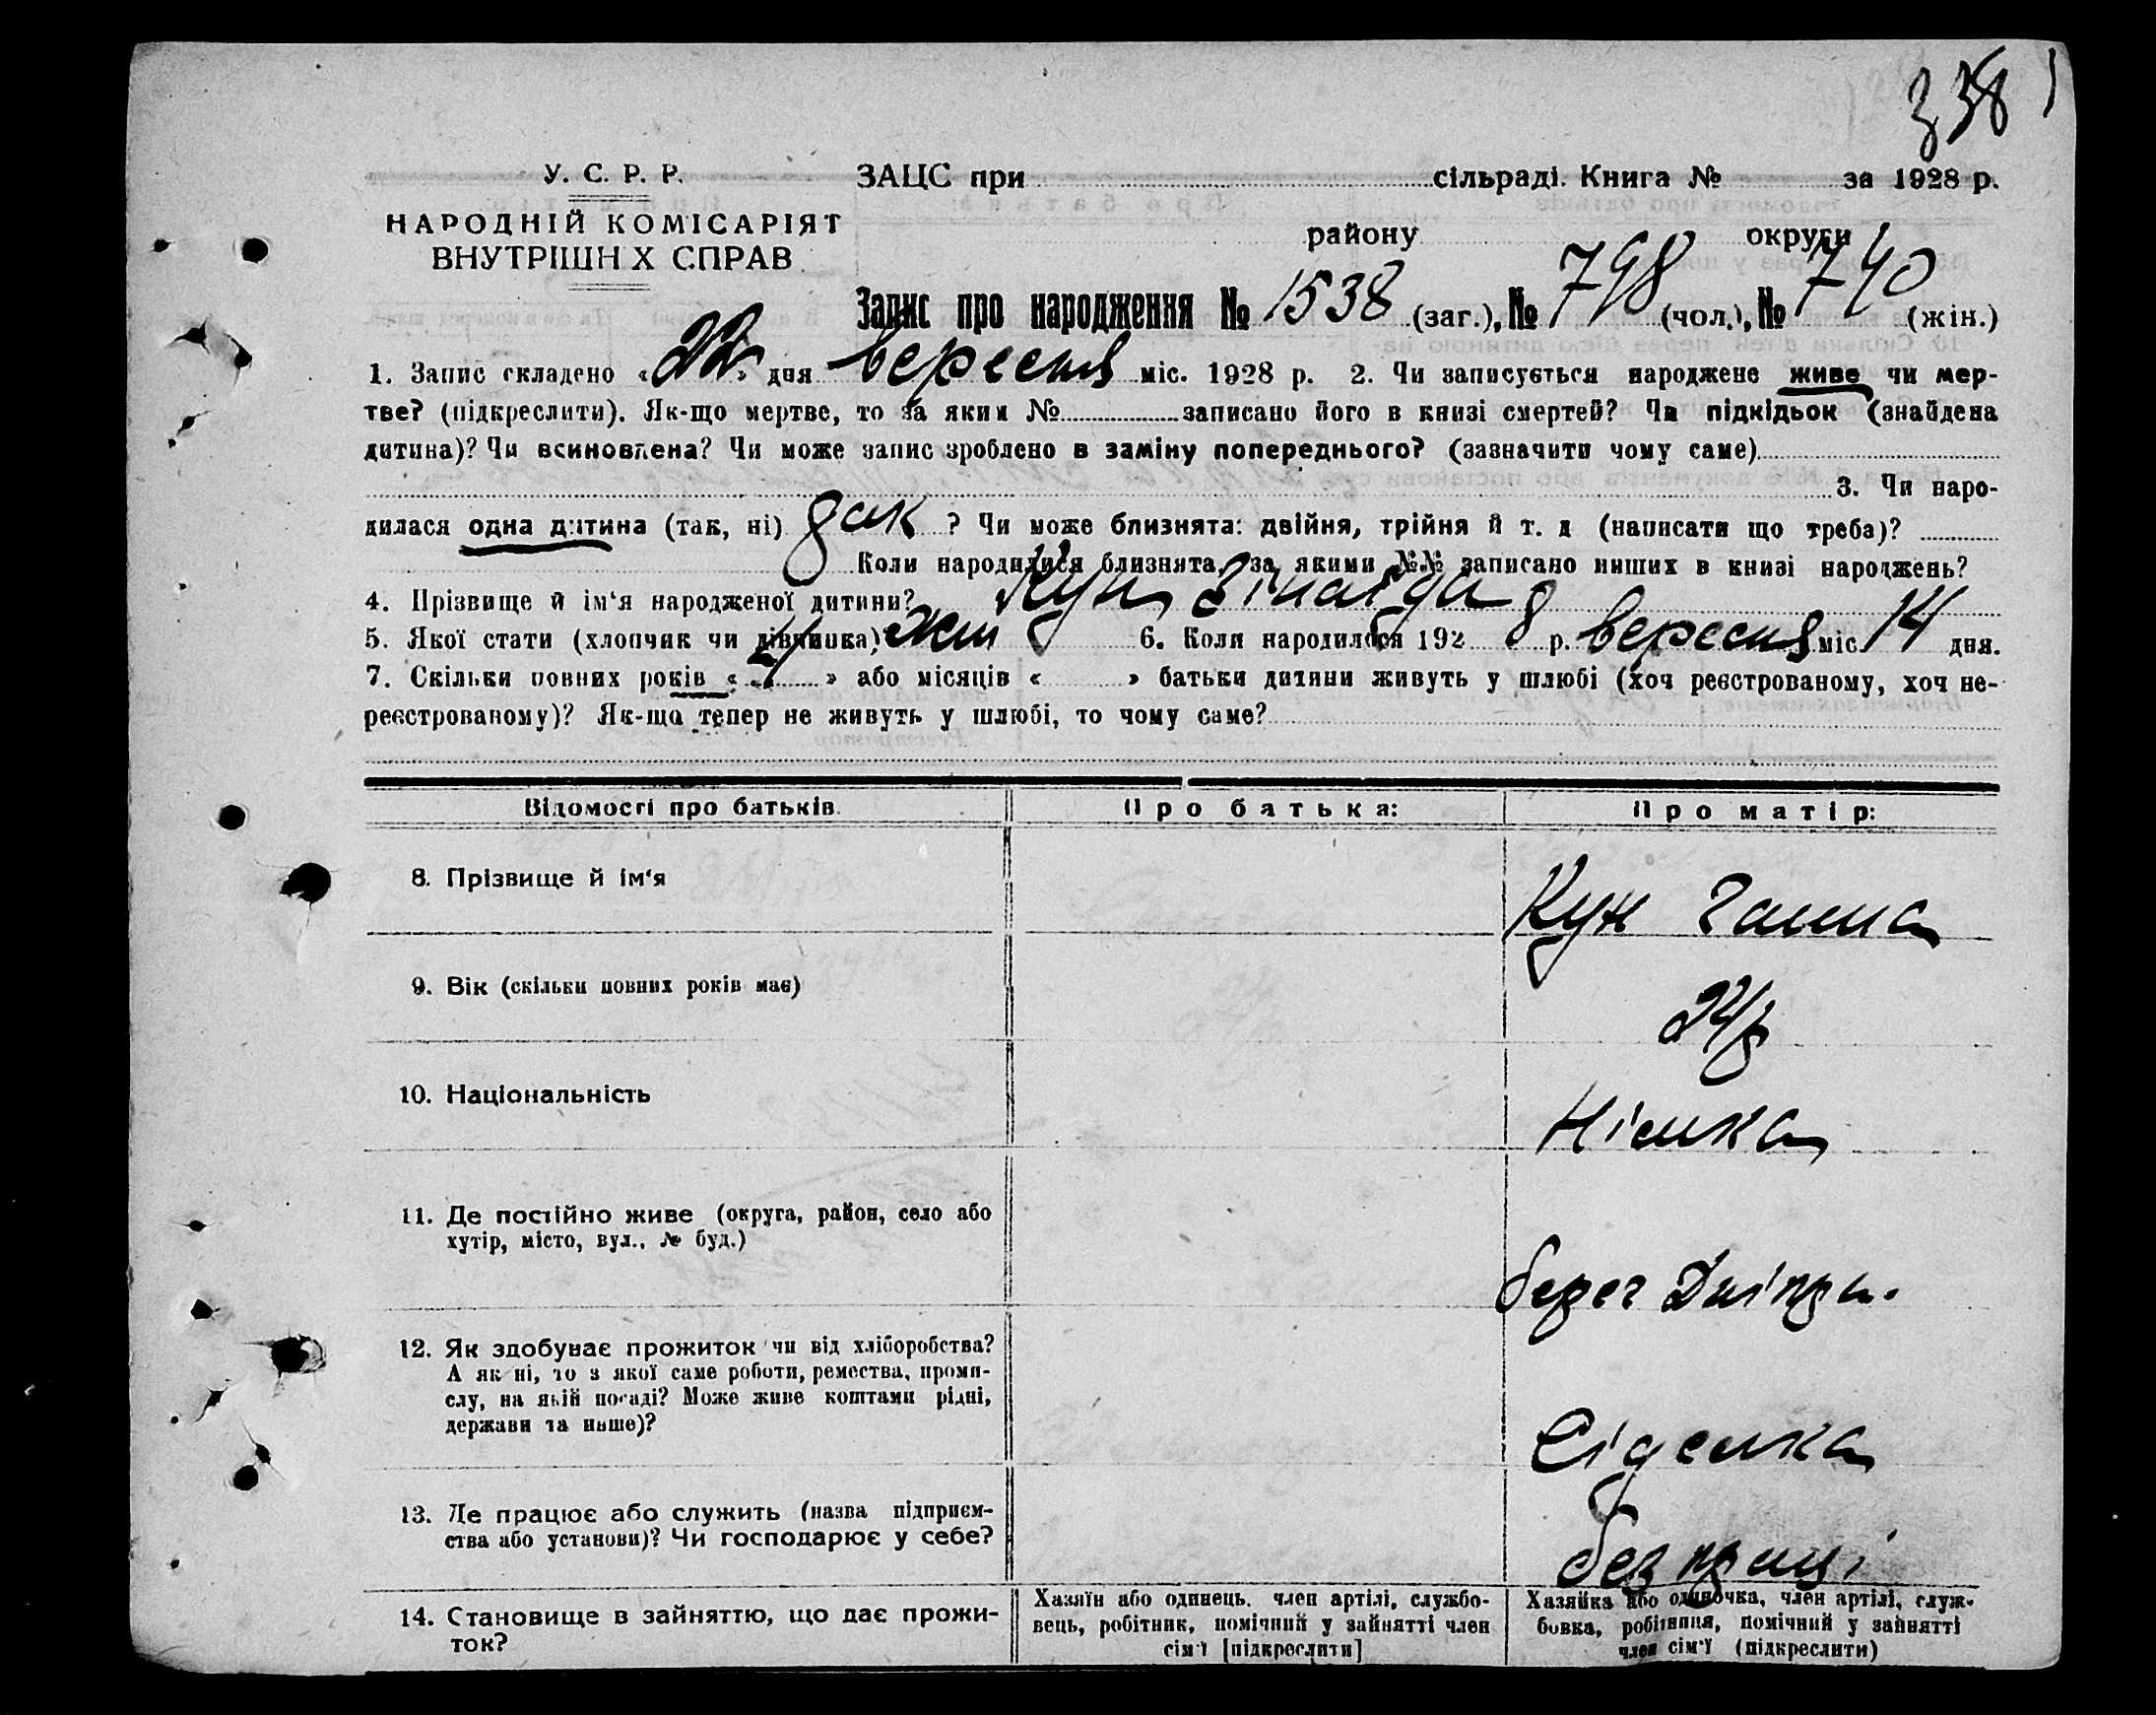 338
У. С. Р. Р.
ЗАЦС при сільраді. Книга № за 1928 р.
НАРОДНІЙ КОМІСАРІЯТ
ВНУТРІШН Х СПРАВ
району округи
Запис про народження № 1538 (заг.), № 798 (чол.), № 740 (жін.)
1. Запис складено «22» дня вересня міс. 1928 р. 2. Чи записується народжене живе чи мер-
тве? (підкреслити). Як-що мертве, то за яким № записано його в книзі смертей? Чи підкідьок (знайдена
дитина)? Чи всиновлена? Чи може запис зроблено в заміну попереднього? (зазначити чому саме)
3. Чи наро-
дилася одна дитина (так, ні) так ? Чи може близнята: двійня, трійня й т. д (написати що треба)?
Коли народилися близнята, за якими №№ записано инших в книзі народжень?
4. Прізвище й ім‘я народженої дитини? Кун Зінаїда
5. Якої стати (хлопчик чи дівчинка)? жін 6. Коли народилося 1928 р. вересня міс. 14 дня.
7. Скільки повних років « » або місяців « » батьки дитини живуть у шлюбі (хоч реєстрованому, хоч не-
реєстрованому)? Як-що тепер не живуть у шлюбі, то чому саме?
Відомості про батьків. Про батька: Про матір:
8. Прізвище й ім‘я Кун Ганна
9. Вік (скільки повних років має) 24 р
10. Національність Німка
11. Де постійно живе (округа, район, село або
хутір, місто, вул., № буд.)
берег Дніпра.
12. Як здобуває прожиток чи від хліборобства?
А як ні, то з якої саме роботи, ремества, проми-
слу, на якій посаді? Може живе коштами рідні,
держави та инше)?
Сіделка
13. Де працює або служить (назва підприєм-
ства або установи)? Чи господарює у себе?
без праці
14. Становище в зайняттю, що дає прожи-
ток?
Хазяїн або одинець. член артілі, службо-
вець, робітник, помічний у зайнятті член
сім‘ї [підкреслити]
Хазяйка або одиночка, член артілі, служ-
бовка, робітниця, помічний у зайнятті
член сім‘ї (підкреслити)